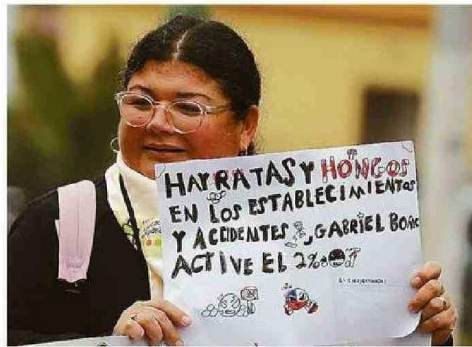 HAY RATAS Y HONGOS
EN LOS ESTABLECIMIENTOS
Y ACCIDENTES, GABRIEL BORIC
ACTIVE EL 2%